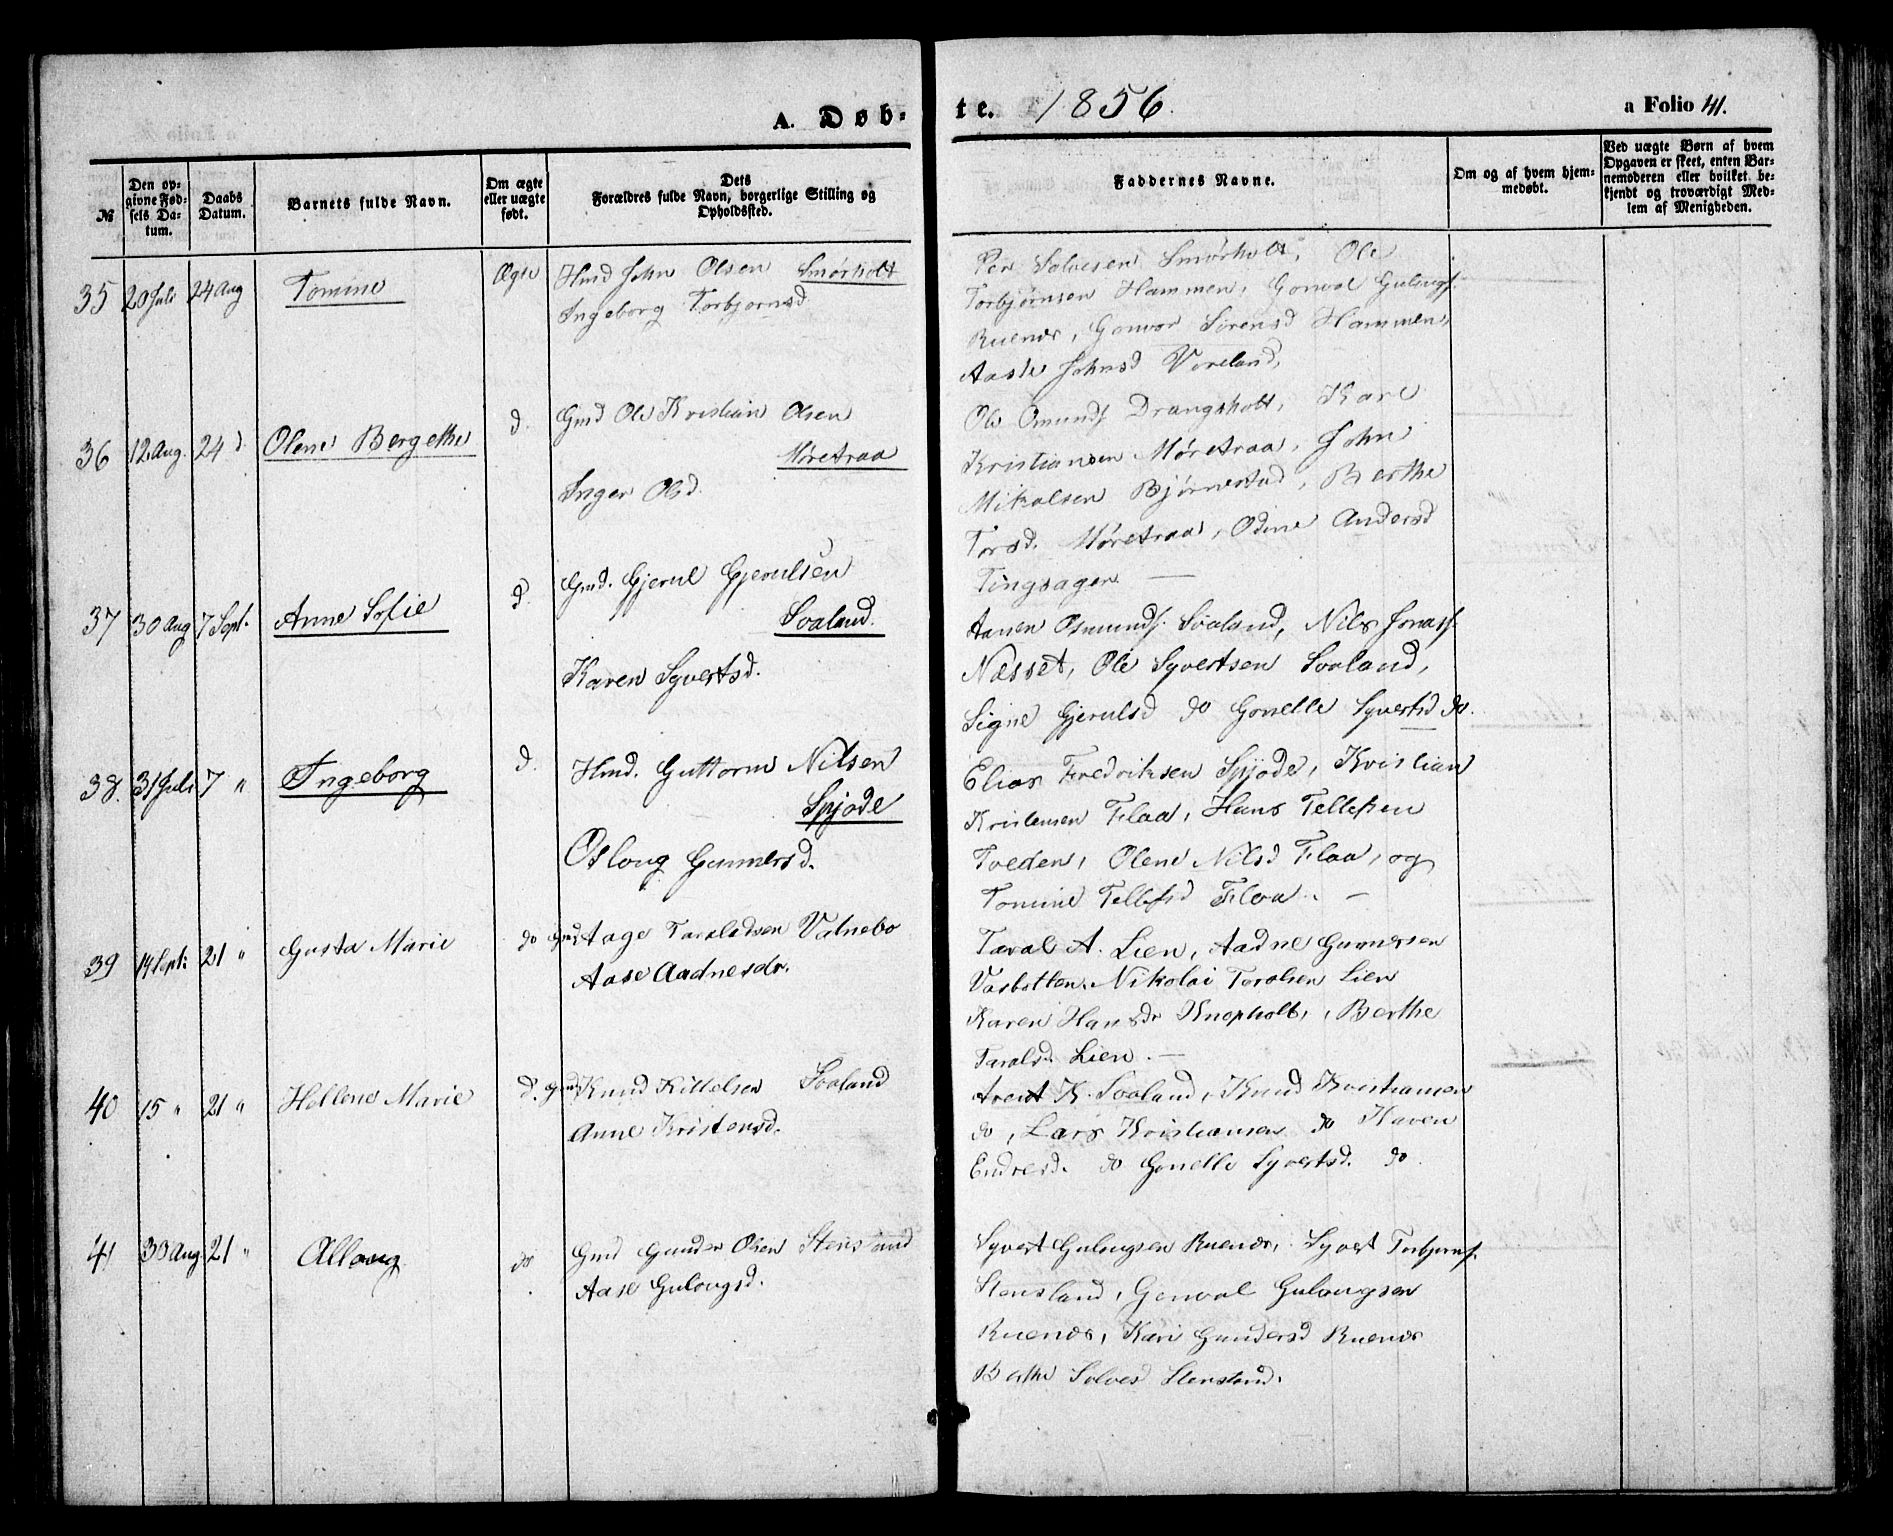 A. Døb-
te. 1856.
a Folio 41.
№
Den op-
givne Fød-
sels Da-
tum.
Daabs
Datum.
Barnets fulde Navn.
Om ægte
eller uægte
født.
Dets
Forældres fulde Navn, borgerlige Stilling og
Opholdssted.
Faddernes Navne.
Om og af hvem hjem-
medøbt.
Ved uægte Børn af hvem
Opgaven er skeet, enten Bar-
nemoderen eller hvilket be-
kjendt og troværdigt Med-
lem af Menigheden.
35 20 Juli 24 Aug Tomine Ægte Hmd John Olsen Smørholt
Ingeborg Torbjørnsd
Per Solvesen Smørholt, Ole
Torbjørnsen Hammen, Gonval Gulougs.
Ruenes, Gonvor Sørensd Hammen,
Aaste Johnsd Voreland,
36 12 Aug. 24 d Olene Bergethe d. Gmd Ole Kristian Olsen
Møretraa
Inger Olsd.
Ole Omunds. Drangsholt, Kare
Kristiansen Møretraa, John
Mikalsen Bjørnestad, Berthe
Torsd. Møretraa, Odine Andersd
Tingsager —
37 30 Aug 7 Sept. Anne Sofie d. Gmd. Gjerul Gjerulsen
Soaland.
Karen Syvertsd.
Aanen Osmunds. Soaland, Nils Jonass.
Nesset, Ole Syvertsen Soaland,
Signe Gjerulsd do Gonelle Syvertsd do.
38. 31 Juli 7 " Ingeborg d. Hmd. Guttorm Nilsen
Spjode
Oslong Gunnersd.
Elias Fredriksen Spjode, Kristian
Kristensen Flaa, Hans Tellefsen
Tveden, Olene Nilsd Flaa, og
Tomine Tellefsd Flaa. —
39 14 Sept. 21 " Gusta Marie do Gmd Aage Taraldsen Vatnebo
Aase Aadnesdr.
Taral A. Lien, Aadne Gunnersen
Vasbotten. Nikolai Taralsen Lien
Karen Hansdr Knapholt, Berthe
Taralsd. Lien. —
40 15 " 21 " Hellene Marie d. Gmd Knud Kittelsen Soaland
Anne Kristensd.
Arent K. Soaland, Knud Kristiansen
do, Lars Kristiansen do Haven
Endresd. do Gonelle Syvertsd. do.
41 30 Aug. 21 " Alloug do Gmd Gunder Olsen Stensland
Aase Gulougsd.
Syvert Gulougsen Ruenes, Syvert Torbjørns.
Stensland, Gonval Gulougsen
Ruenes, Kari Gundersd Ruenes
Berthe Solves Stensland.